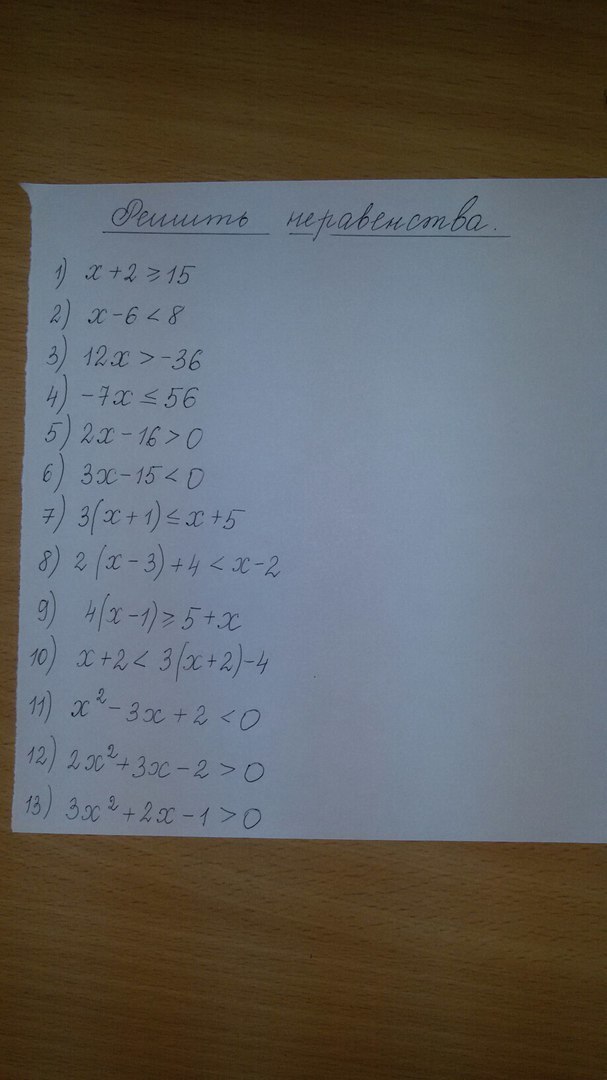 Решить неравенства.
1) x+2 ≥ 15
2) x-6 < 8
3) 12x > -36
4) -7x ≤ 56
5) 2x-16 > 0
6) 3x-15 < 0
7) 3(x+1) ≤ x+5
8) 2(x-3)+4 < x-2
9) 4(x-1) ≥ 5+x
10) x+2 < 3(x+2)-4
11) x²-3x+2 < 0
12) 2x²+3x-2 > 0
13) 3x²+2x-1 > 0